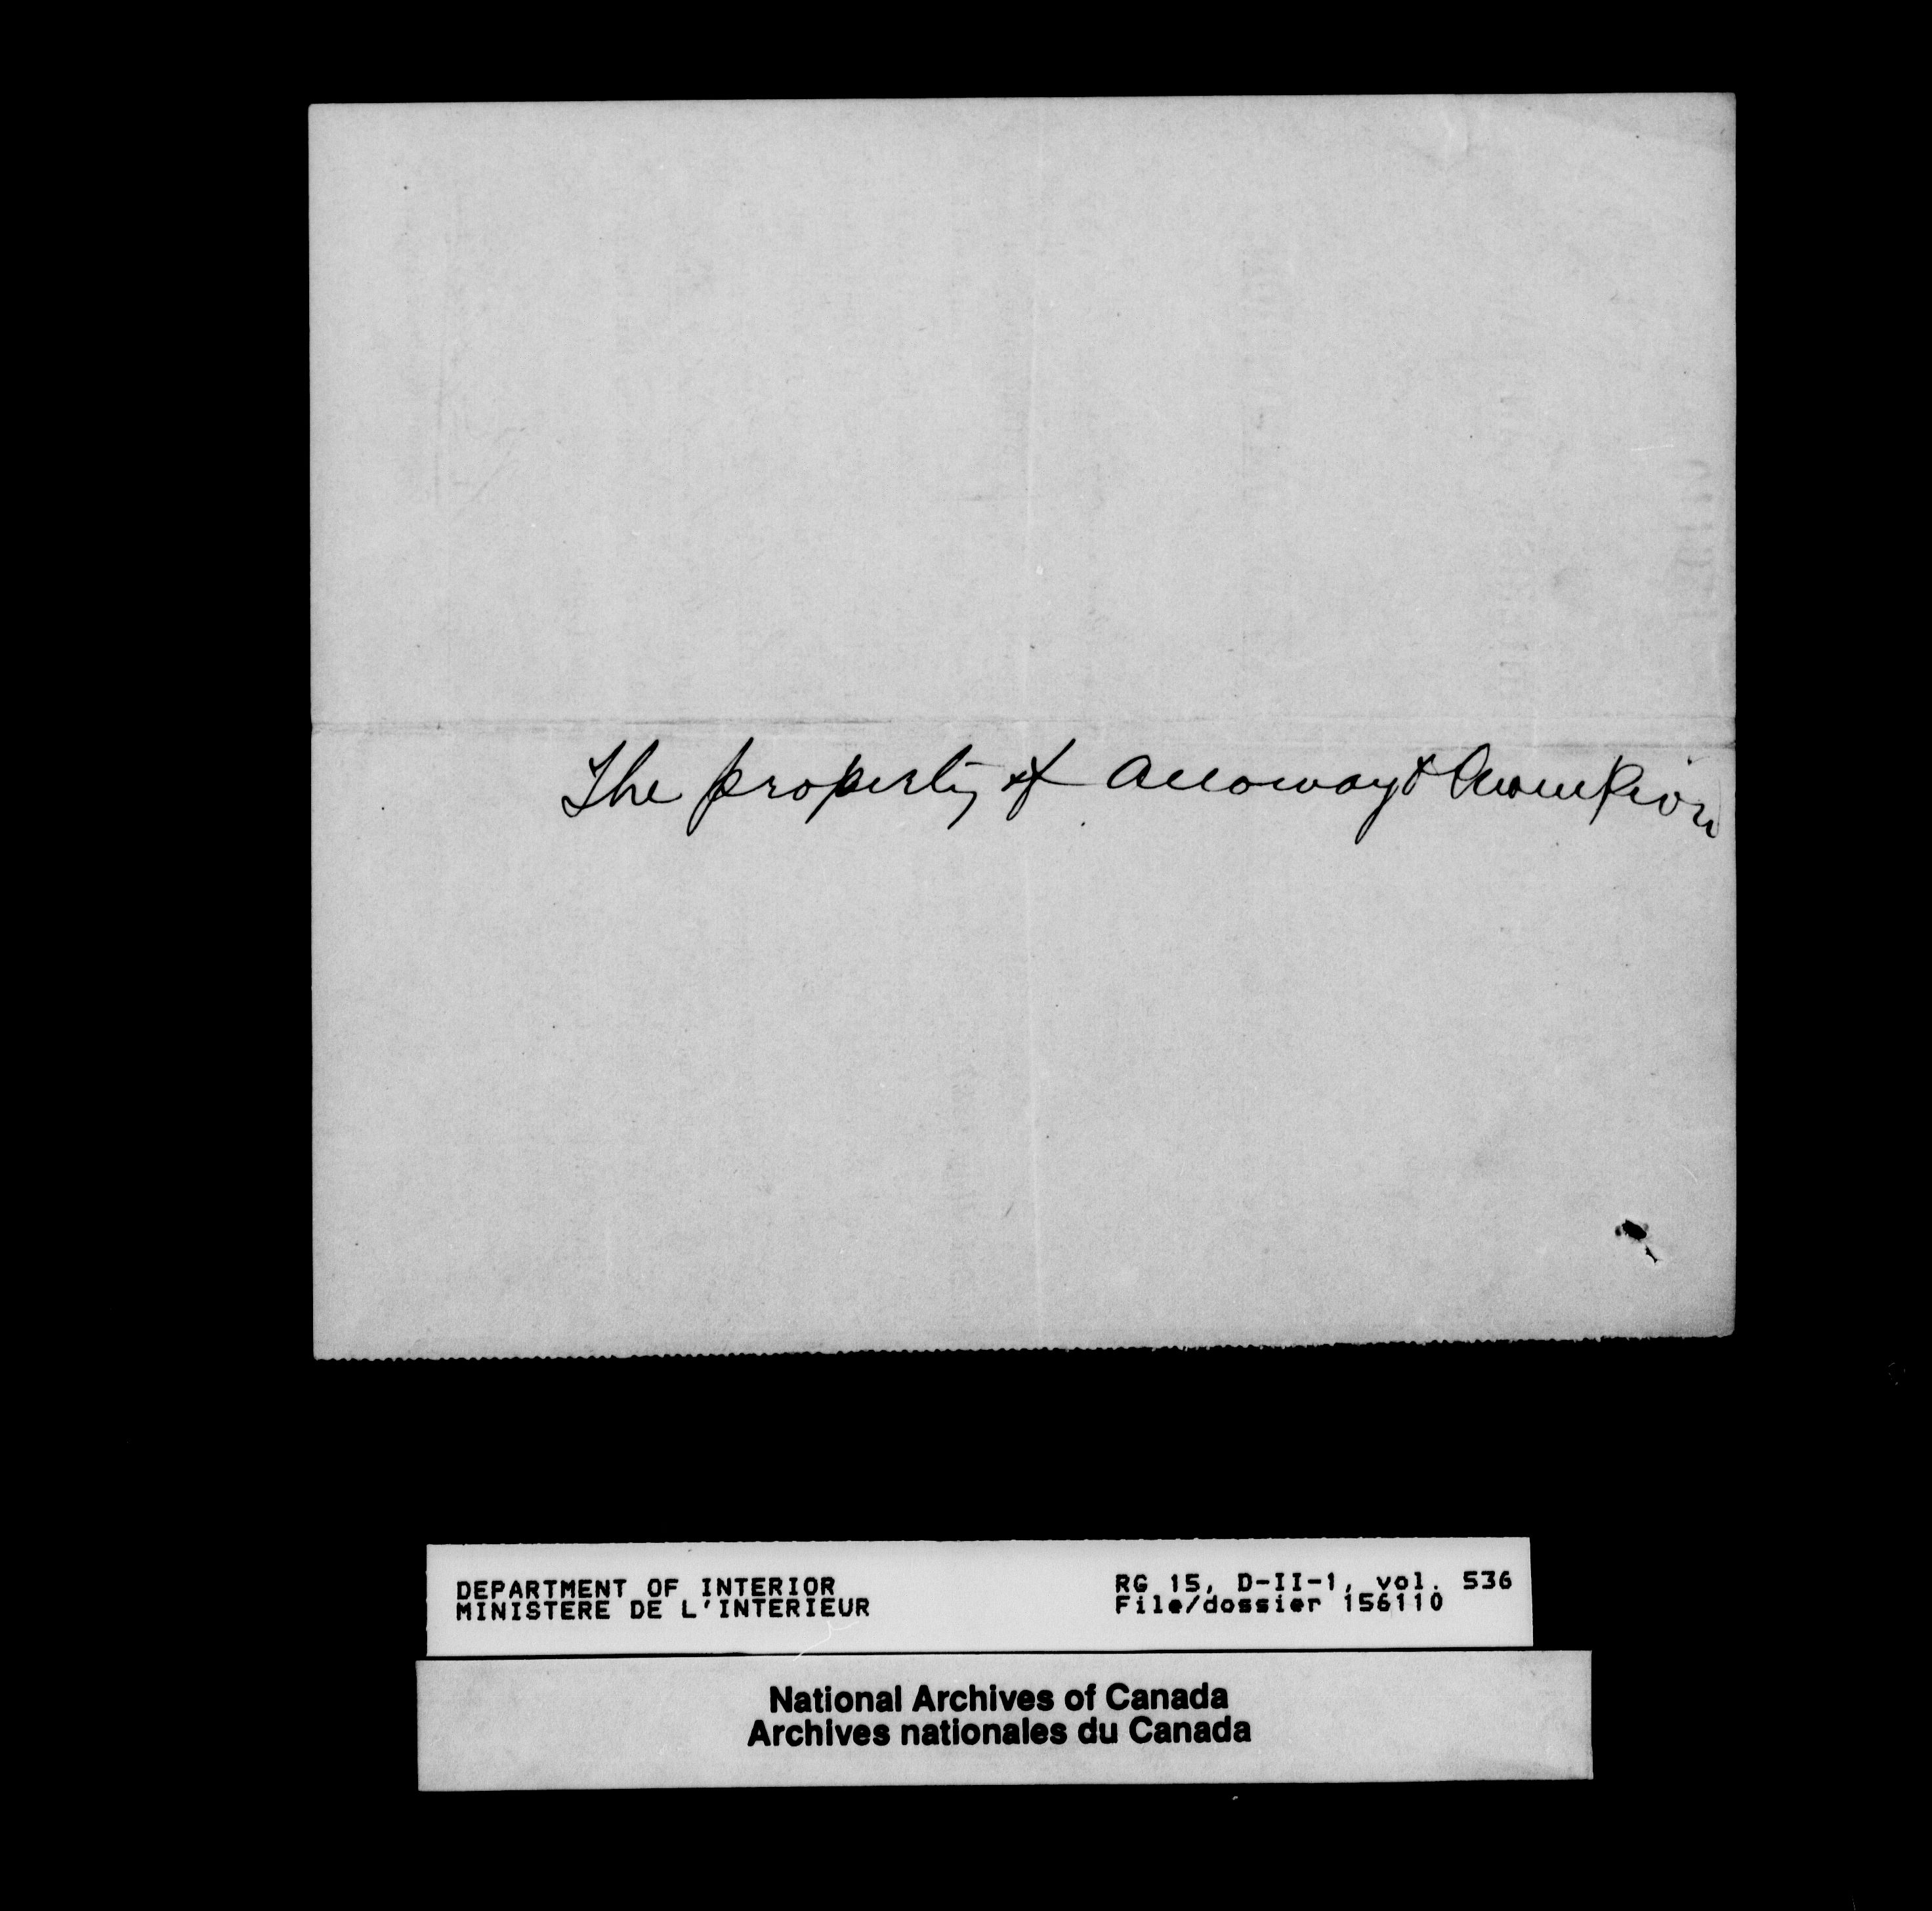 The property of Alloway & Champion
DEPARTMENT OF INTERIOR
MINISTERE DE L'INTERIEUR
RG 15, D-II-1, vol. 536
File/dossier 156110
National Archives of Canada
Archives nationales du Canada